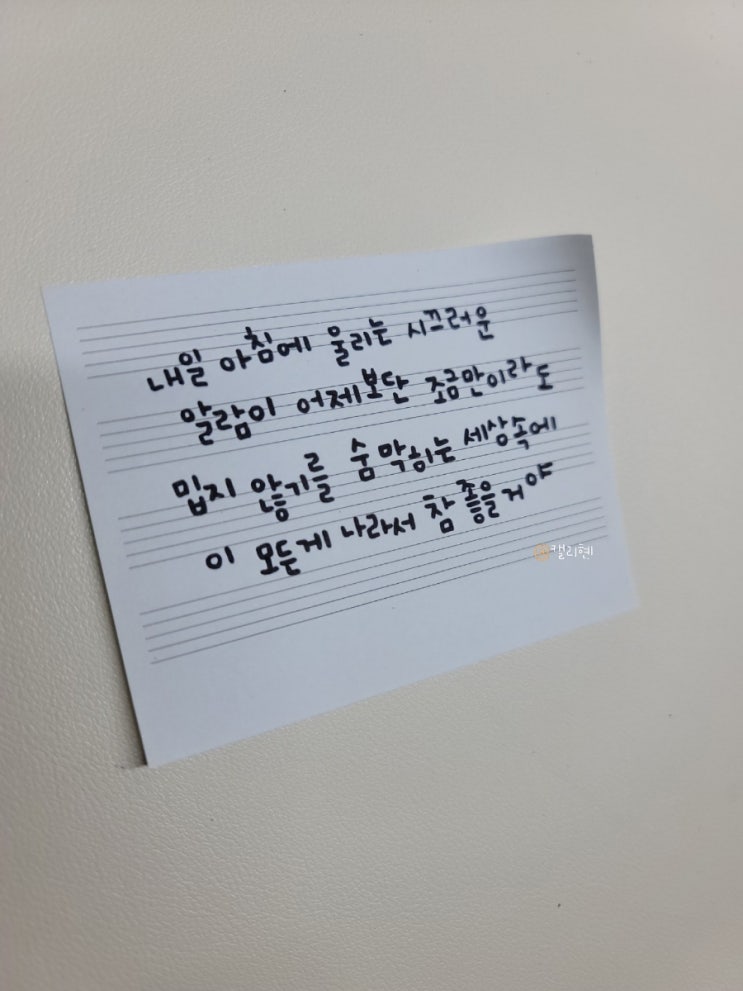 내일 아침에 울리는 시끄러운
알람이 어제보단 조금만이라도
밉지 않기를 숨막히는 세상속에
이 모든게 나라서 참 좋을거야
캘리헨